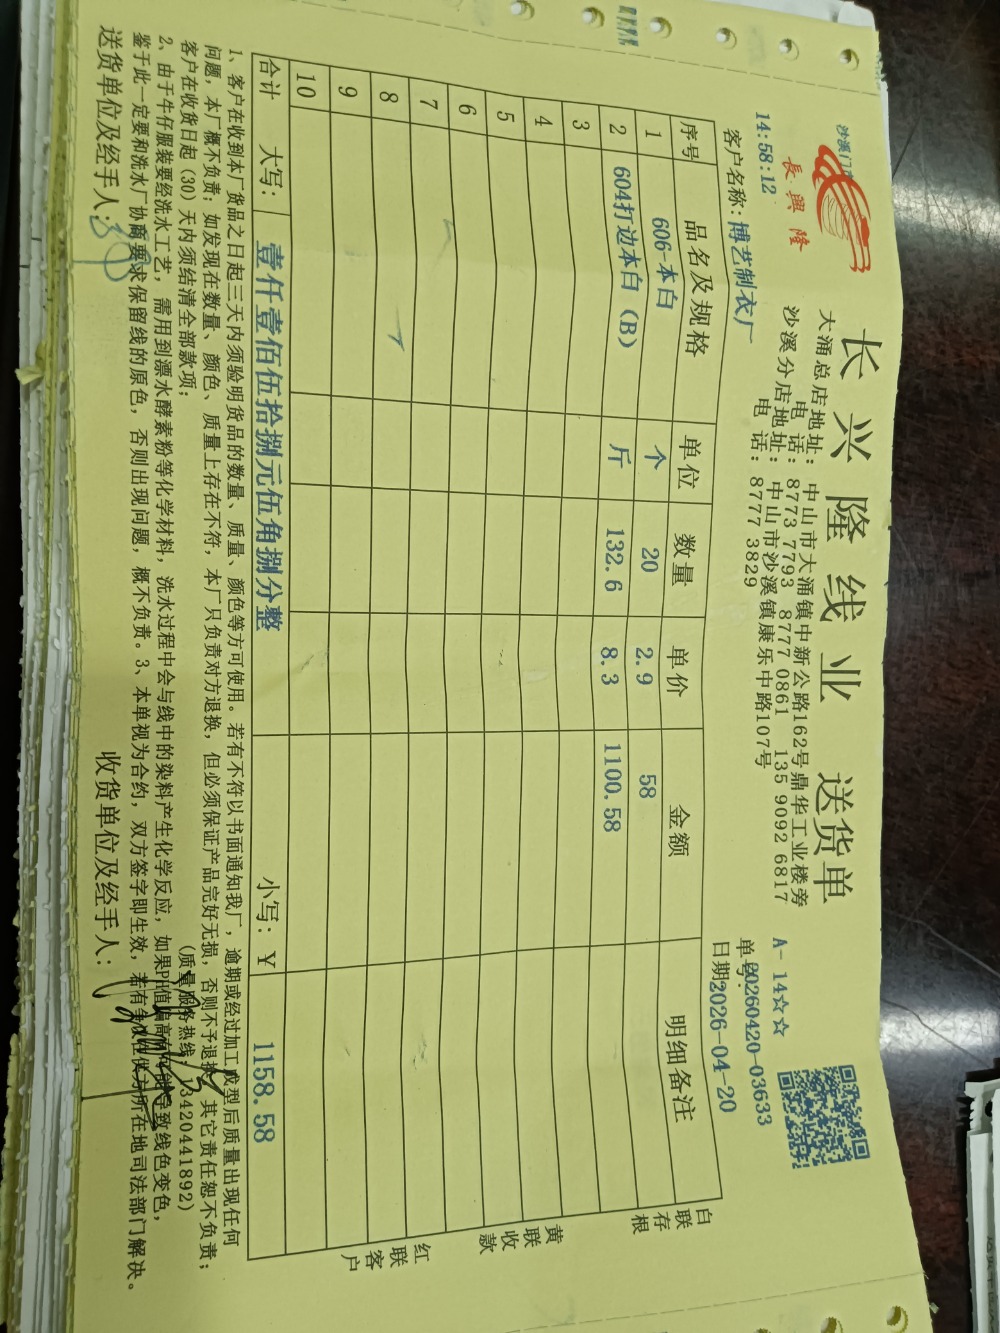 長興隆
长兴隆线业 送货单
大涌总店地址:中山市大涌镇中新公路162号鼎华工业楼旁
电 话:8773 7793 8777 0861 135 9092 6817
沙溪分店地址:中山市沙溪镇康乐中路107号
电 话:8777 3829
A- 14☆☆
14:58:12
单号:20260420-03633
客户名称:博艺制衣厂
日期:2026-04-20
序号 品名及规格 单位 数量 单价 金额 明细备注
1 606-本白 个 20 2.9 58
2 604打边本白(B) 斤 132.6 8.3 1100.58
3
4
5
6
7
8
9
10
合计 大写: 壹仟壹佰伍拾捌元伍角捌分整 小写:¥ 1158.58
白联存根
黄联收款
红联客户
1、客户在收到本厂货品之日起三天内须验明货品的数量、质量、颜色等方可使用。若有不符以书面通知我厂,逾期或经过加工成型后质量出现任何
问题,本厂概不负责;如发现在数量、颜色、质量上存在不符,本厂只负责对方退换,但必须保证产品完好无损,否则不予退换,其它责任恕不负责;
客户在收货日起(30)天内须结清全部款项; (质量服务热线:13420441892)
2、由于牛仔服装要经洗水工艺,需用到漂水酵素粉等化学材料,洗水过程中会与线中的染料产生化学反应,如果PH值偏高有可能导致线色变色,
鉴于此一定要和洗水厂协商要求保留线的原色,否则出现问题,概不负责。3、本单视为合约,双方签字即生效,若有争议在供方所在地司法部门解决。
送货单位及经手人: 收货单位及经手人: